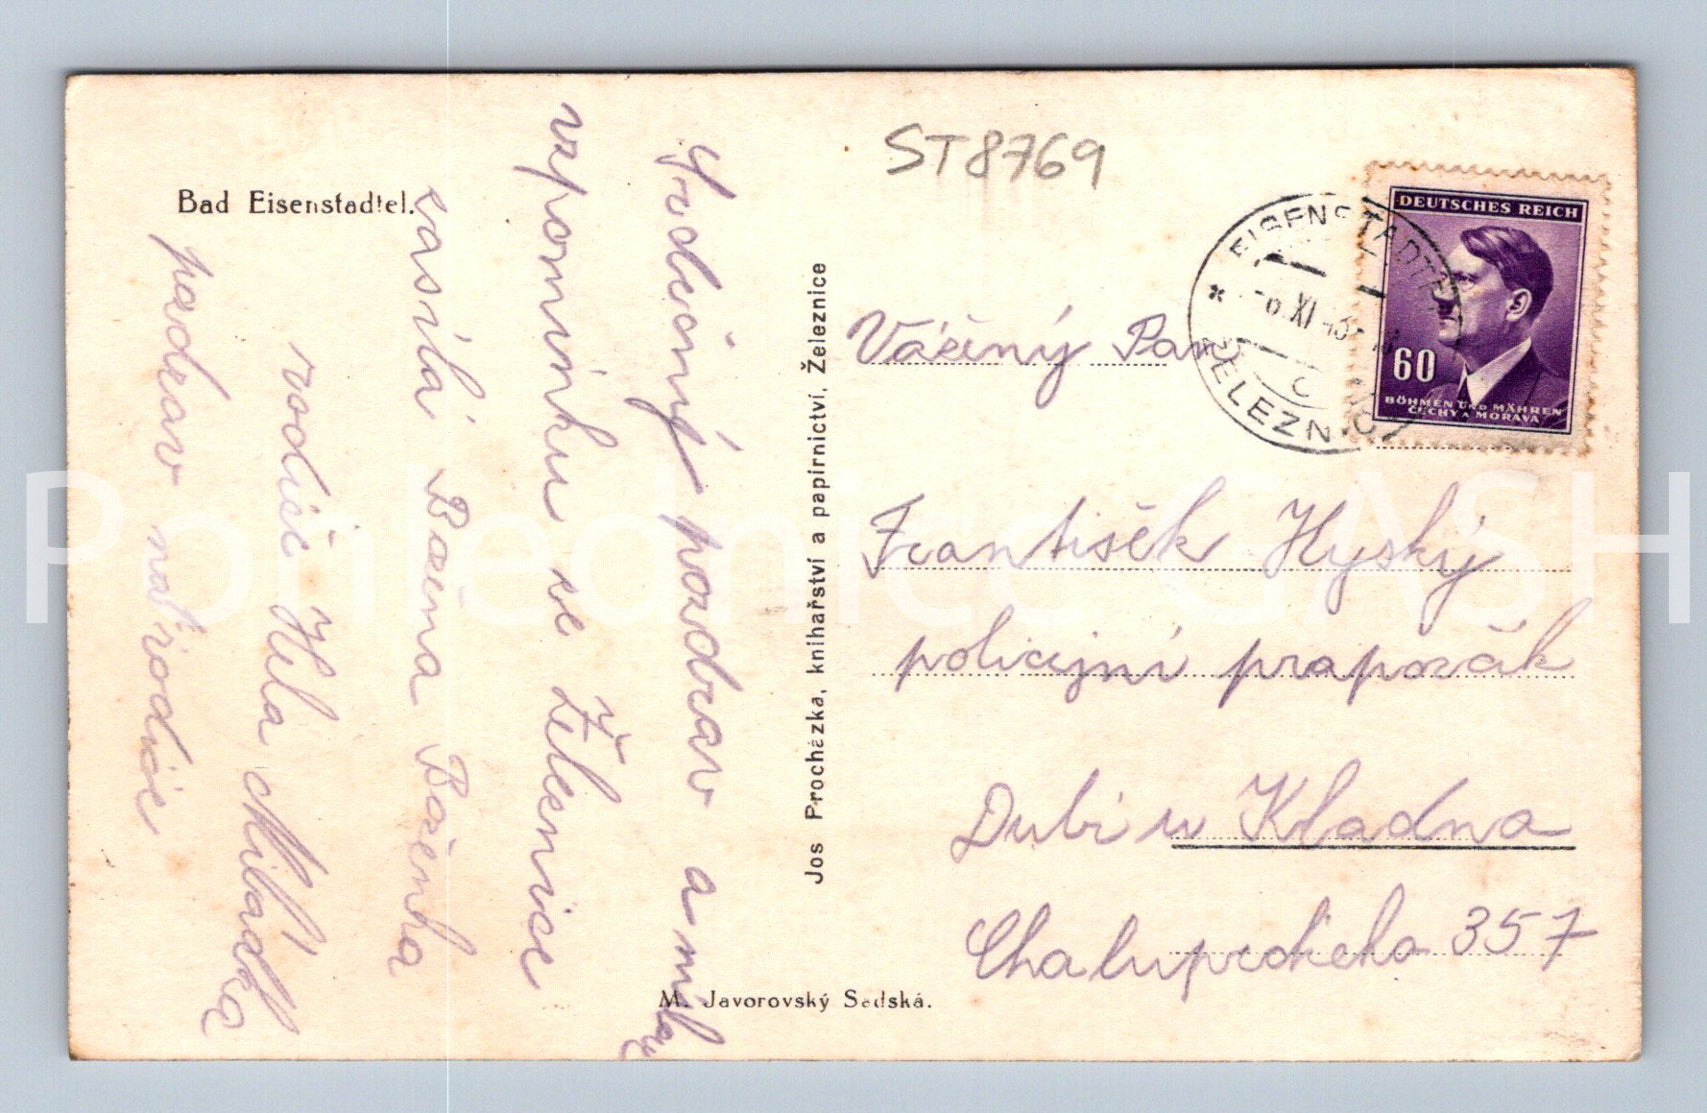 Bad Eisenstadtel.
Srdečný pozdrav a milou
vzpomínku ve Železnice
zasílá Božena Boženka
rodiče Hela Miládka
pozdrav na rodiče
Jos Procházka, knihařství a papírnictví, Železnice
M. Javorovský Sadská.
ST8769
EISENSTADTEL
6.XI.43
ŽELEZNICE
DEUTSCHES REICH
60
BÖHMEN UND MÄHREN
ČECHY A MORAVA
Vážený Pan
František Hyský
policejní praporčík
Dubí u Kladna
357
Pohlednice GASH